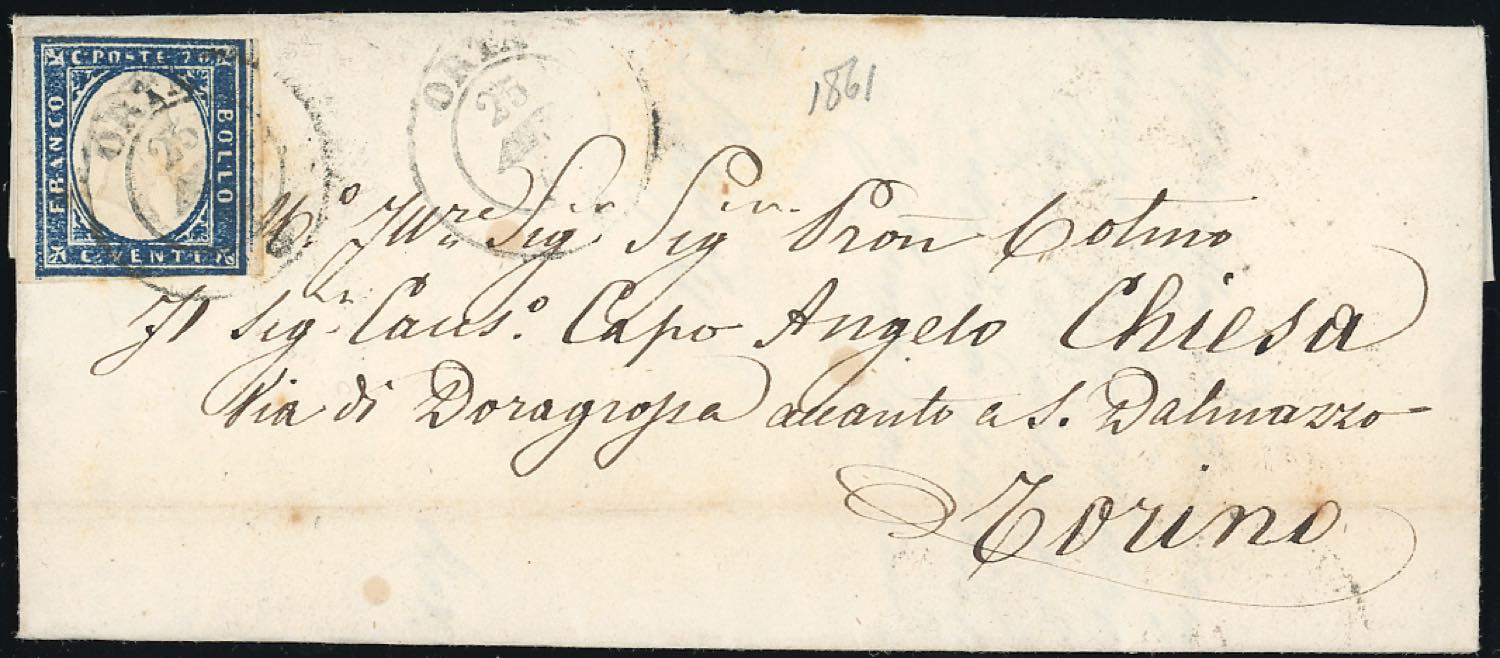 C POSTE 20
FRANCO
BOLLO
C VENTI
ORTA
25
ORTA
25
1861
Sig. Sig Pron Colmo
Il Sigr Caus.o Capo Angelo Chiesa
Via di Doragrossa accanto a S. Dalmazzo
Torino